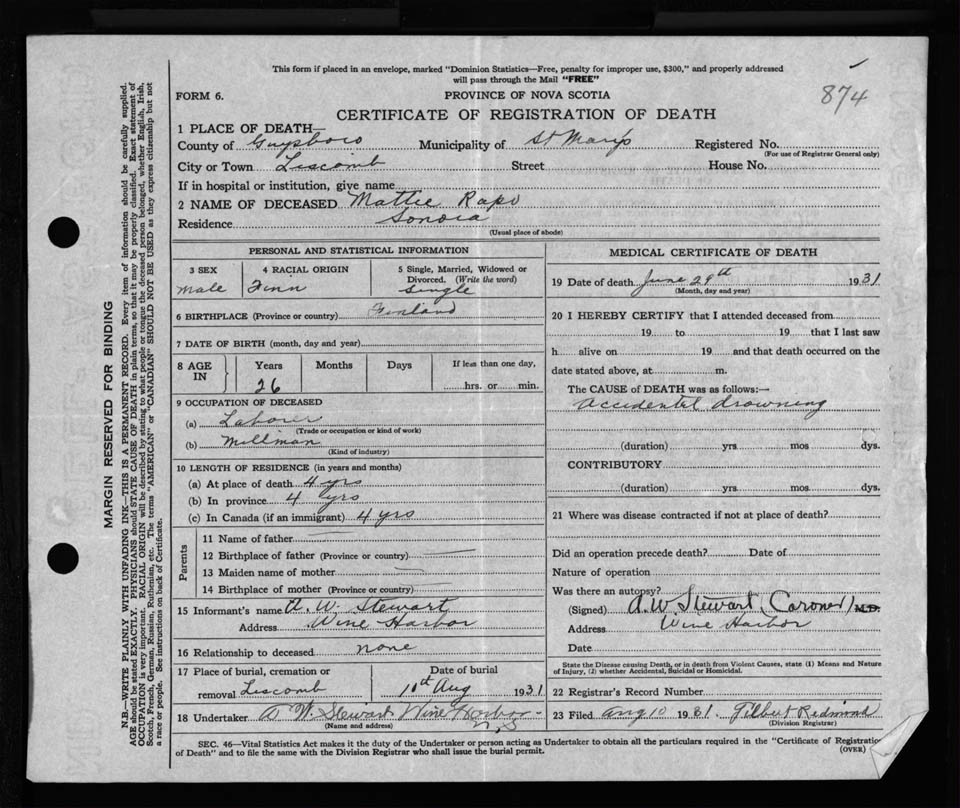 This form if placed in an envelope, marked "Dominion Statistics—Free, penalty for improper use, $300," and properly addressed
will pass through the Mail "FREE"
FORM 6.
PROVINCE OF NOVA SCOTIA
874
CERTIFICATE OF REGISTRATION OF DEATH
1 PLACE OF DEATH—
County of Guysboro Municipality of St Marys Registered No.
(For use of Registrar General only)
City or Town Liscomb Street House No.
If in hospital or institution, give name
2 NAME OF DECEASED Mattie Rapo
Residence Sonora
(Usual place of abode)
PERSONAL AND STATISTICAL INFORMATION
3 SEX 4 RACIAL ORIGIN 5 Single, Married, Widowed or
Divorced. (Write the word)
Male Finn Single
6 BIRTHPLACE (Province or country) Finland
7 DATE OF BIRTH (month, day and year)
8 AGE IN Years Months Days If less than one day,
26 hrs. or min.
9 OCCUPATION OF DECEASED
(a) Laborer
(Trade or occupation or kind of work)
(b) Millman
(Kind of industry)
10 LENGTH OF RESIDENCE (in years and months)
(a) At place of death 4 yrs
(b) In province 4 yrs
(c) In Canada (if an immigrant) 4 yrs
Parents
11 Name of father
12 Birthplace of father (Province or country)
13 Maiden name of mother
14 Birthplace of mother (Province or country)
15 Informant's name A. W. Stewart
Address Wine Harbor
16 Relationship to deceased none
17 Place of burial, cremation or Date of burial
removal Liscomb 10th Aug 1931
18 Undertaker A W. Stewart Wine Harbor
(Name and address) N.S
MEDICAL CERTIFICATE OF DEATH
19 Date of death June 29th 1931
(Month, day and year)
20 I HEREBY CERTIFY that I attended deceased from
19 to 19 that I last saw
h alive on 19 and that death occurred on the
date stated above, at m.
The CAUSE of DEATH was as follows:—
Accidental drowning
(duration) yrs mos dys.
CONTRIBUTORY
(duration) yrs. mos. dys.
21 Where was disease contracted if not at place of death?
Did an operation precede death? Date of
Nature of operation
Was there an autopsy?
(Signed) A. W. Stewart (Coroner) M.D.
Address Wine Harbor
Date
State the Disease causing Death, or in death from Violent Causes, state (1) Means and Nature
of Injury, (2) whether Accidental, Suicidal or Homicidal.
22 Registrar's Record Number
23 Filed Aug 10 1931. Gilbert Redmond
(Division Registrar)
SEC. 46—Vital Statistics Act makes it the duty of the Undertaker or person acting as Undertaker to obtain all the particulars required in the "Certificate of Registration
of Death" and to file the same with the Division Registrar who shall issue the burial permit.
(OVER)
MARGIN RESERVED FOR BINDING
N.B.—WRITE PLAINLY WITH UNFADING INK—THIS IS A PERMANENT RECORD. Every item of information should be carefully supplied.
AGE should be stated EXACTLY. PHYSICIANS should STATE CAUSE OF DEATH in plain terms, so that it may be properly classified. Exact statement of
OCCUPATION is very important. RACIAL ORIGIN will be described by stating to what people or tongue the deceased person belonged, whether English, Irish,
Scotch, French, German, Russian, Ruthenian, etc. The terms "AMERICAN" or "CANADIAN" SHOULD NOT BE USED as they express citizenship but not
a race or people. See instructions on back of Certificate.